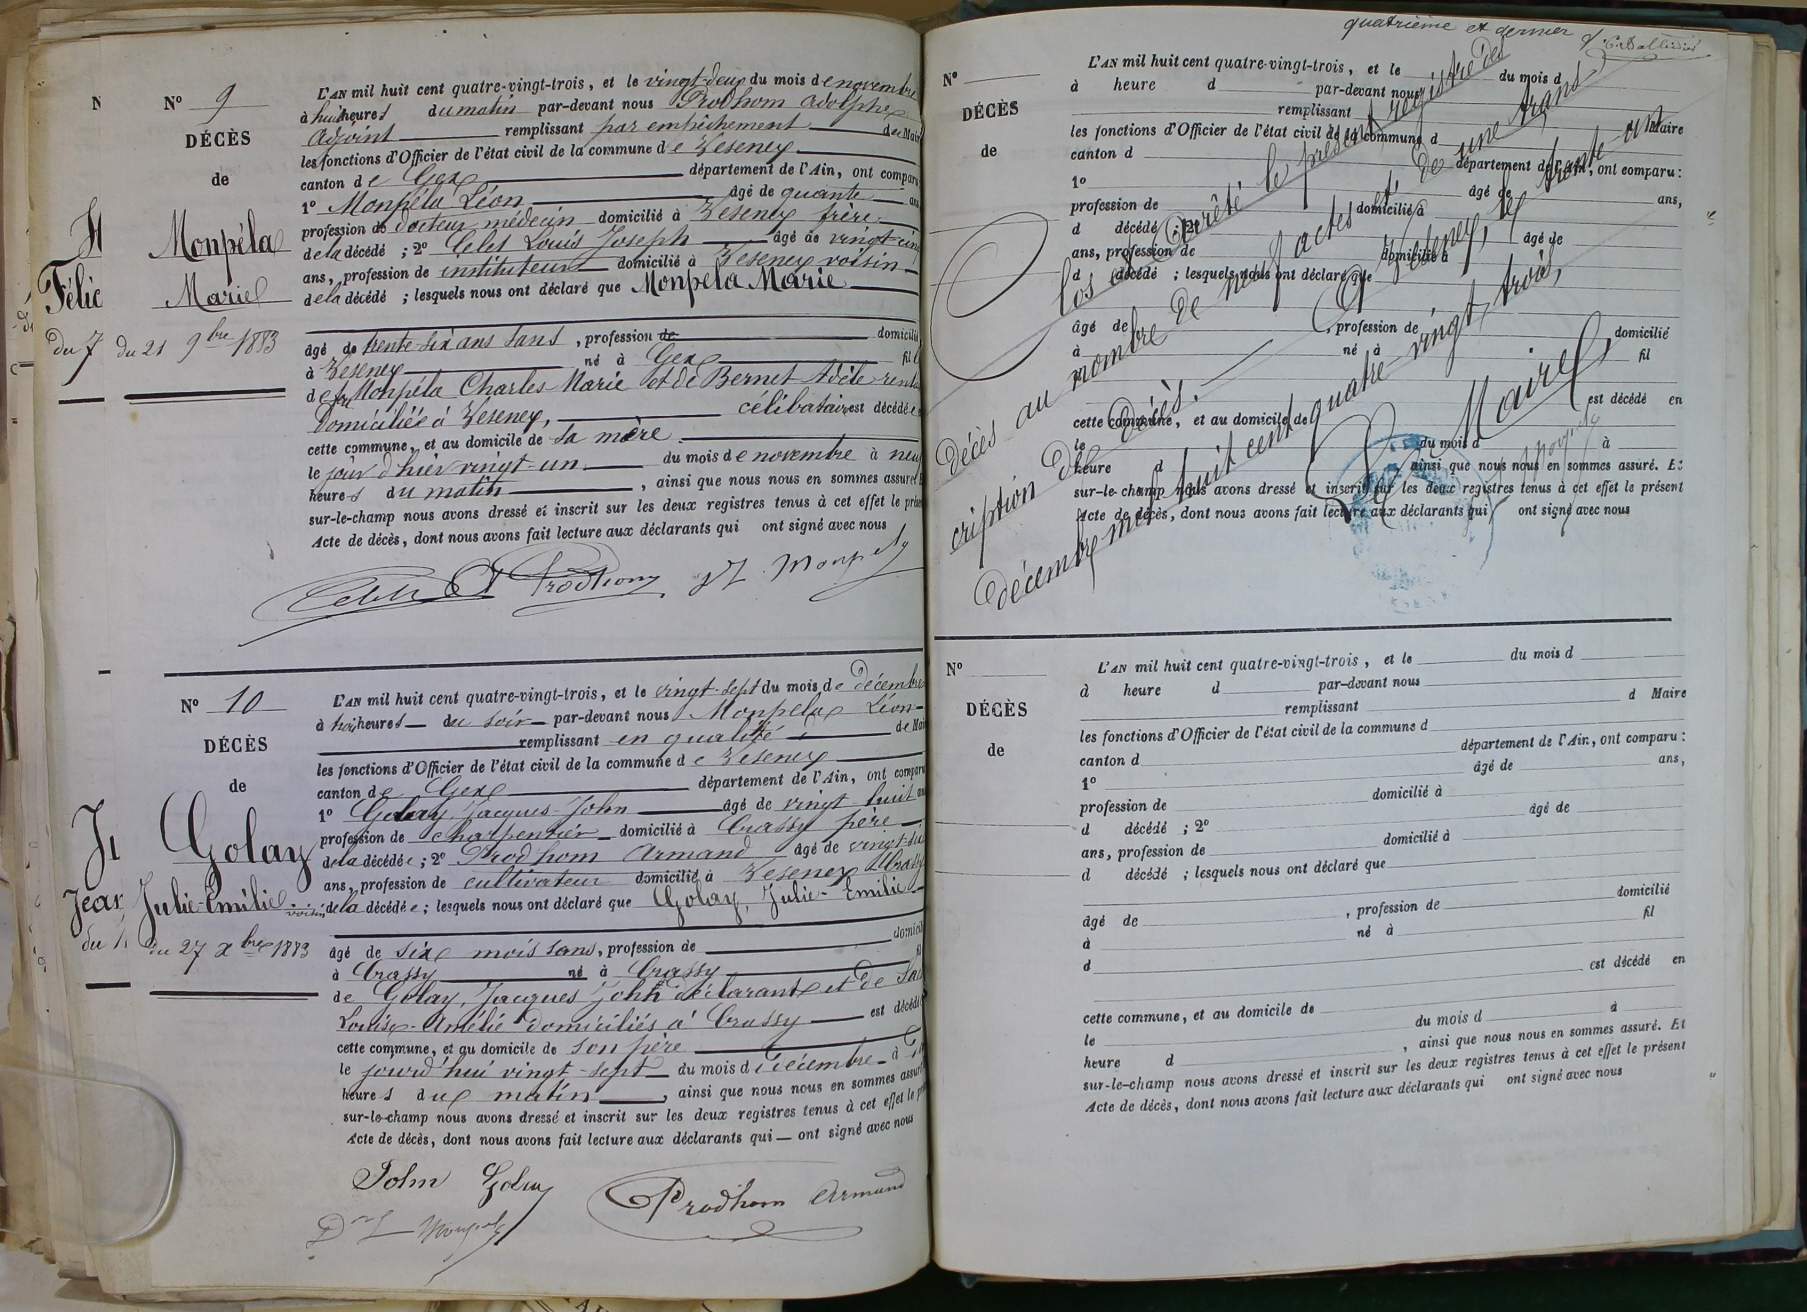 N
H
Félic
du 7
N° 9
DÉCÈS
de
Monpéla
Marie
du 21 9bre 1883
L'AN mil huit cent quatre-vingt-trois, et le vingt-deux du mois de novembre
à huit heures du matin par-devant nous Prodhom Adolphe
Adjoint remplissant par empêchement de Mair
les fonctions d'Officier de l'état civil de la commune de Veseney
canton de Gex département de l'Ain, ont comparu
1° Monpéla Léon âgé de quante ans
profession de docteur médecin domicilié à Veseney frère
de la décédé ; 2° Louis Joseph âgé de vingt-cinq
ans, profession de instituteur domicilié à Veseney voisin
de la décédé ; lesquels nous ont déclaré que Monpéla Marie
âgé de trente-six ans sans, profession de domicilié
à Veseney né à Gex fil
de feu Monpéla Charles Marie et de Bernet Adèle
Domiciliée à Veseney, célibataire est décédée
cette commune, et au domicile de sa mère
le jour d'hier vingt-un du mois de novembre à neuf
heures du matin, ainsi que nous nous en sommes assuré
sur-le-champ nous avons dressé et inscrit sur les deux registres tenus à cet effet le prése
Acte de décès, dont nous avons fait lecture aux déclarants qui ont signé avec nous
A Prodhom L Monpela
Jean
N° 10
DÉCÈS
de
Golay
Julie-Emilie
du 27 Xbre 1883
L'AN mil huit cent quatre-vingt-trois, et le vingt-sept du mois de décembre
à trois heures du soir par-devant nous Monpéla Léon
remplissant en qualité de Mai
les fonctions d'Officier de l'état civil de la commune de Veseney
canton de Gex département de l'Ain, ont comparu
1° Golay, Jacques-John âgé de vingt-huit an
profession de charpentier domicilié à Crassy père
de la décédée ; 2° Prodhom Armand âgé de vingt-six
ans, profession de cultivateur domicilié à Veseney Crassy
voisin de la décédée ; lesquels nous ont déclaré que Golay, Julie-Emilie
âgé de six mois sans, profession de domicil
à Crassy né à Crassy
de Golay, Jacques John déclarant et de
Louise-Amélie domiciliés à Crassy est décédé
cette commune, et au domicile de son père
le jourd'hui vingt-sept du mois de décembre à
heures du matin, ainsi que nous nous en sommes assuré
sur-le-champ nous avons dressé et inscrit sur les deux registres tenus à cet effet le pr
Acte de décès, dont nous avons fait lecture aux déclarants qui ont signé avec nous
John Golay
Prodhom Armand
Dr L Monpela
quatrième et dernier
N°
DÉCÈS
de
L'AN mil huit cent quatre-vingt-trois, et le du mois d
à heure d par-devant nous
remplissant d Maire
les fonctions d'Officier de l'état civil de la commune d
canton d département de l'Ain, ont comparu :
1° âgé de ans,
profession de domicilié à
d décédé ; 2° âgé de
ans, profession de domicilié à
d décédé ; lesquels nous ont déclaré que
âgé de , profession de domicilié
à né à fil
d
est décédé en
cette commune, et au domicile de
le du mois d à
heure d ainsi que nous nous en sommes assuré. Et
sur-le-champ nous avons dressé et inscrit sur les deux registres tenus à cet effet le présent
Acte de décès, dont nous avons fait lecture aux déclarants qui ont signé avec nous
Clos et arrêté le présent registre des
décès au nombre de neuf actes et de une trans
cription de décès. A Veseney, le trente-un
décembre mil huit cent quatre-vingt-trois,
Le Maire,
N°
DÉCÈS
de
L'AN mil huit cent quatre-vingt-trois, et le du mois d
à heure d par-devant nous
remplissant d Maire
les fonctions d'Officier de l'état civil de la commune d
canton d département de l'Ain, ont comparu :
1° âgé de ans,
profession de domicilié à
d décédé ; 2° âgé de
ans, profession de domicilié à
d décédé ; lesquels nous ont déclaré que
âgé de , profession de domicilié
à né à fil
d
est décédé en
cette commune, et au domicile de
le du mois d à
heure d , ainsi que nous nous en sommes assuré. Et
sur-le-champ nous avons dressé et inscrit sur les deux registres tenus à cet effet le présent
Acte de décès, dont nous avons fait lecture aux déclarants qui ont signé avec nous